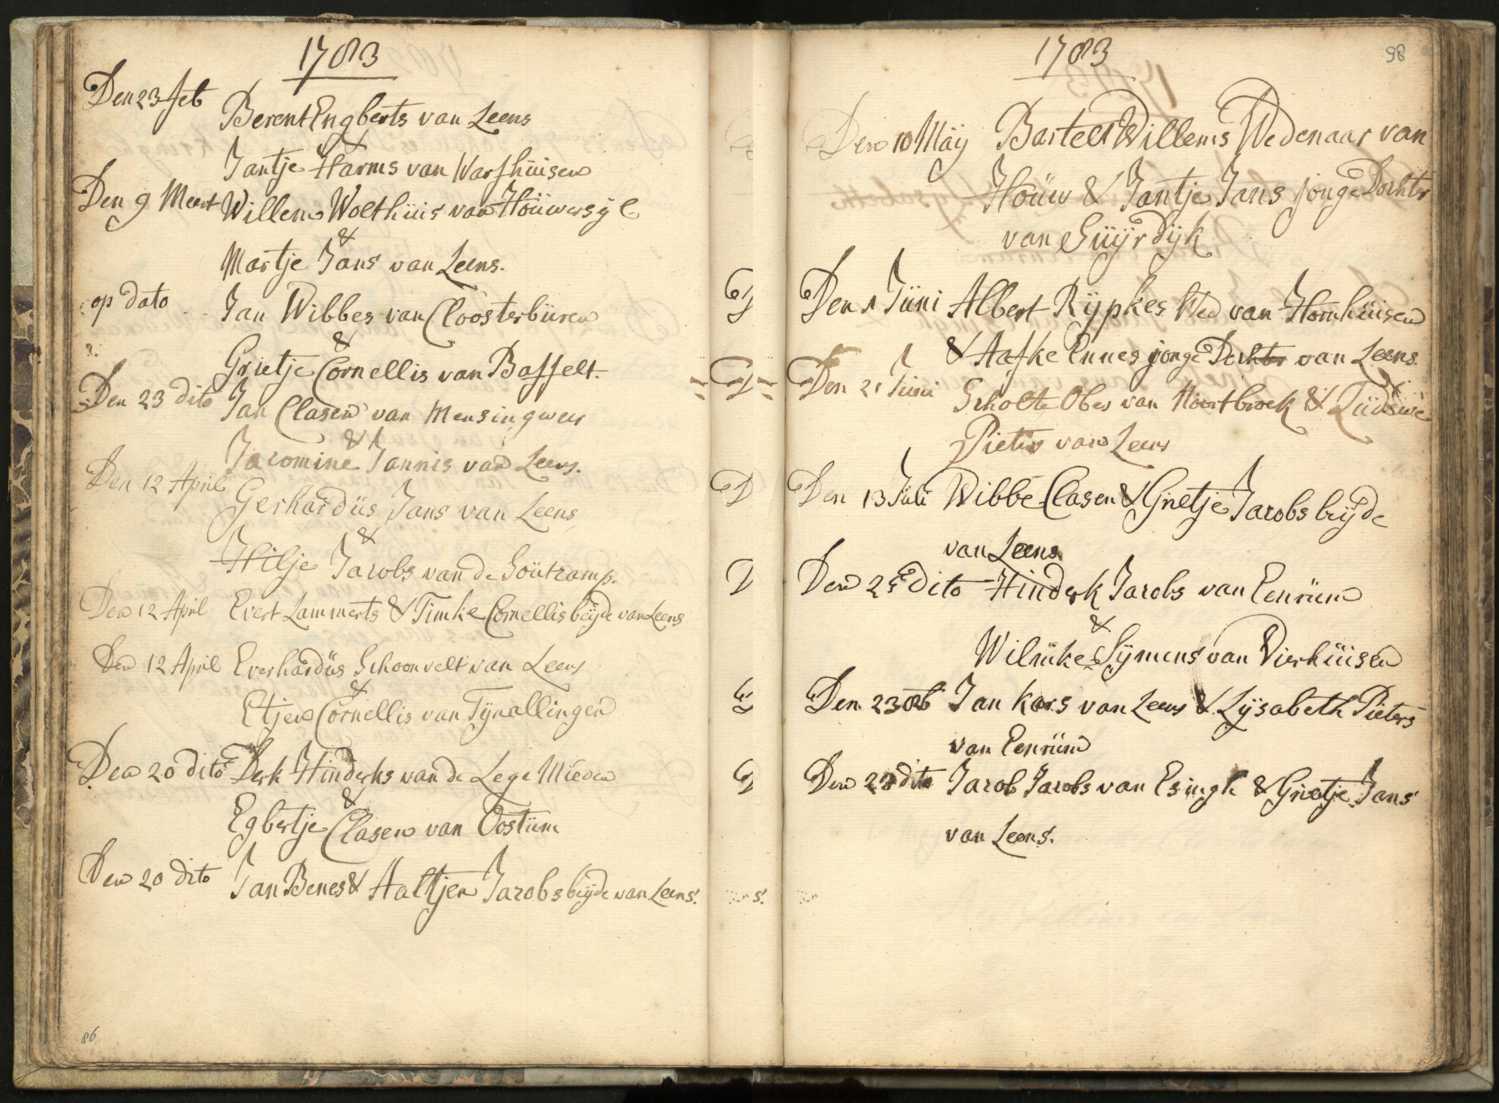 1783
Den 23 feb
Berent Engberts van Leens
&
Jantje Harms van Warfhuisen
Den 9 Meert Willem Wolthüis van Hoüwersÿl
&
Martje Jans van Leens.
op dato Jan Wibbes van Cloosterbüren
&
Grietje Cornellis van Baffelt.
Den 23 dito Jan Clasen van Mensingweer
&
Jacomine Jannis van Leens.
Den 12 April Gerhardüs Jans van Leens
&
Hilje Jacobs van de Soütcamp.
Den 12 April Evert Lammerts & Timke Cornellis beÿde van Leens
Den 12 April Everhardüs Schoonvelt van Leens
&
Etjen Cornellis van Tÿnallingen
Den 20 dito Derk Hinderks van de Lege Mieden
&
Egbertje Clasen van Oostüm
Den 20 dito Jan Benes & Aaltjen Jacobs beÿde van Leens.
86
1783
98
Den 10 Maÿ Bartelt Willems Wedenaar van
Hoüw & Jantje Jans jonge Dochter
van Süÿrdÿk
Den 1 Jüni Albert Rÿpkes Wed van Hornhüisen
& Aafke Ennes jonge Dochter van Leens
Den 21 Jüni Scholte Obes van Noortbroek &
Pieters van Leens
Den 13 Jüli Wibbe Clasen & Grietje Jacobs beÿde
van Leens
Den dito Hinderk Jacobs van Eenrüm
&
Wilmke Sÿmens van Vierhüisen
Den 23 Jan Kars van Leens & Lÿsabeth Pieters
van Eenrüm
Den dito Jacob Jacobs van Esingh & Grietje Jans
van Leens.